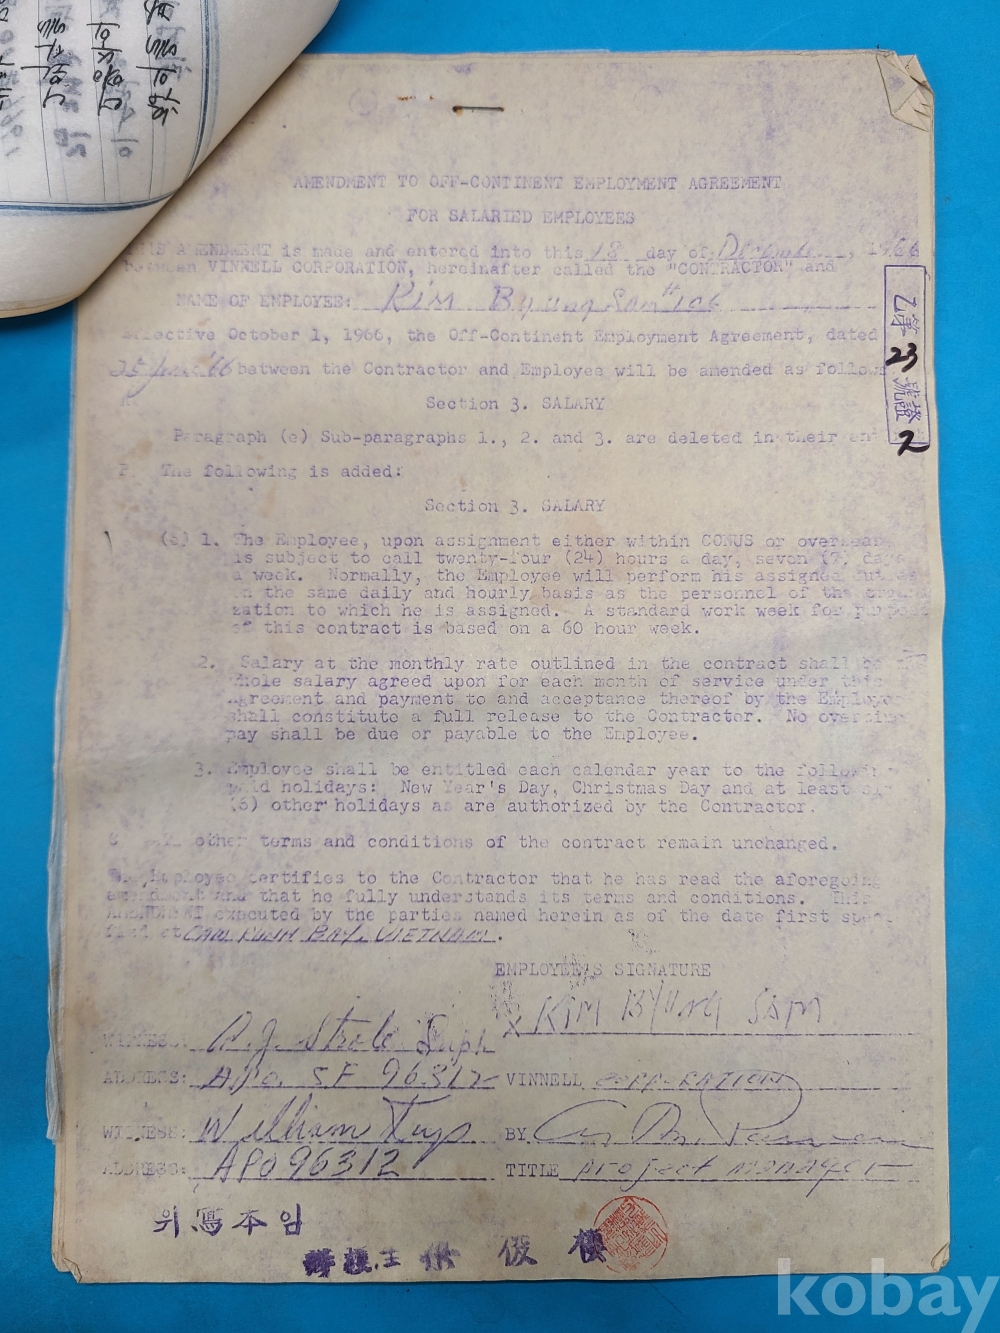 AMENDMENT TO OFF-CONTINENT EMPLOYMENT AGREEMENT
FOR SALARIED EMPLOYEES
AMENDMENT is made and entered into this 18 day of December, 1966
between VINNELL CORPORATION, hereinafter called the "CONTRACTOR" and
NAME OF EMPLOYEE: KIM Byung Sam #106
Effective October 1, 1966, the Off-Continent Employment Agreement, dated
25 June '66 between the Contractor and Employee will be amended as follows
Section 3. SALARY
Paragraph (e) Sub-paragraphs 1., 2. and 3. are deleted in their
The following is added:
Section 3. SALARY
1. The Employee, upon assignment either within CONUS or overseas
is subject to call twenty-four (24) hours a day, seven (7) da
a week. Normally, the Employee will perform his assigned
on the same daily and hourly basis as the personnel of the
zation to which he is assigned. A standard work week for
of this contract is based on a 60 hour week.
2. Salary at the monthly rate outlined in the contract shall be
whole salary agreed upon for each month of service under this
agreement and payment to and acceptance thereof by the Employe
shall constitute a full release to the Contractor. No overtime
pay shall be due or payable to the Employee.
3. Employee shall be entitled each calendar year to the following
paid holidays: New Year's Day, Christmas Day and at least
(6) other holidays as are authorized by the Contractor.
C other terms and conditions of the contract remain unchanged.
The Employee certifies to the Contractor that he has read the aforegoing
amendment and that he fully understands its terms and conditions. This
AMENDMENT executed by the parties named herein as of the date first spec
fied at CAM RANH BAY, VIETNAM.
EMPLOYEE'S SIGNATURE
X KIM BYUNG SAM
WITNESS: Supt
ADDRESS: APO. SF 96312 VINNELL CORPORATION
WITNESS: William BY
ADDRESS: APO 96312 TITLE project manager
위 寫本임
23
2
kobay